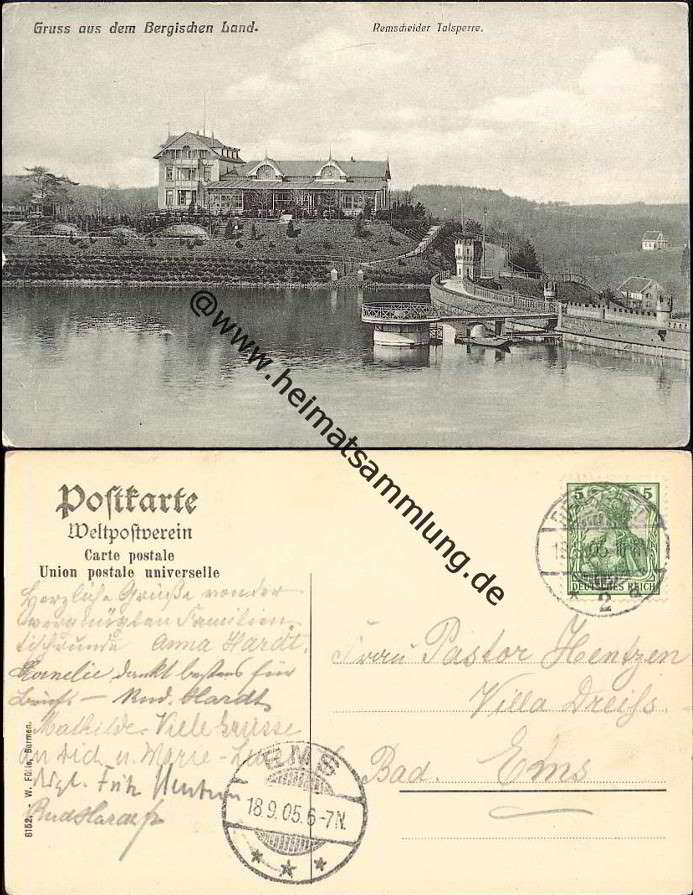 Gruss aus dem Bergischen Land. Remscheider Talsperre.
@www.heimatsammlung.de
Postkarte
Weltpostverein
Carte postale
Union postale universelle
5 5
DEUTSCHES REICH
Herzliche Grüße von der
vergnügten Familien
Anna Hardt.
Cornelie dankt bestens für
Rud. Hardt
Mathilde. Viele Grüsse
an Did. u. Marie
Fritz Hentzen
Rud Hardt jr
Frau Pastor Hentzen
Villa Dreiss
Bad. Ems
EMS
18.9.05.6-7N.
8152. W. Fülle, Barmen.